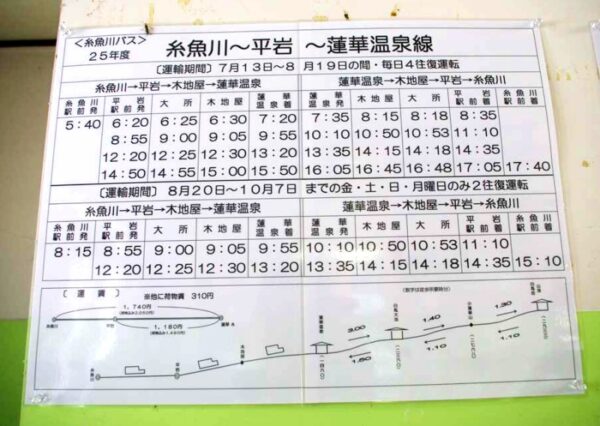 <糸魚川バス>
25年度
糸魚川～平岩 ～蓮華温泉線
〔運輸期間〕 7月13日～8月19日の間・毎日4往復運転
糸魚川→平岩→木地屋→蓮華温泉 蓮華温泉→木地屋→平岩→糸魚川
糸魚川駅前発 平岩駅前発 大所 木地屋 蓮華温泉着 蓮華温泉発 木地屋 大所 平岩駅前着 糸魚川駅前着
5:40 6:20 6:25 6:30 7:20 7:35 8:15 8:18 8:35
8:55 9:00 9:05 9:55 10:10 10:50 10:53 11:10
12:20 12:25 12:30 13:20 13:35 14:15 14:18 14:35
14:50 14:55 15:00 15:50 16:05 16:45 16:48 17:05 17:40
〔運輸期間〕 8月20日～10月7日 までの金・土・日・月曜日のみ2往復運転
糸魚川→平岩→木地屋→蓮華温泉 蓮華温泉→木地屋→平岩→糸魚川
糸魚川駅前発 平岩駅前発 大所 木地屋 蓮華温泉着 蓮華温泉発 木地屋 大所 平岩駅前着 糸魚川駅前着
8:15 8:55 9:00 9:05 9:55 10:10 10:50 10:53 11:10
12:20 12:25 12:30 13:20 13:35 14:15 14:18 14:35 15:10
〔運賃〕 ※他に荷物賃 310円
1,740円
1,180円
糸魚川 平岩 蓮華
3.00 1.40 1.30
1.50 1.10 1.10
糸魚川 平岩 木地屋 蓮華温泉 白馬大池 小蓮華山 白馬岳